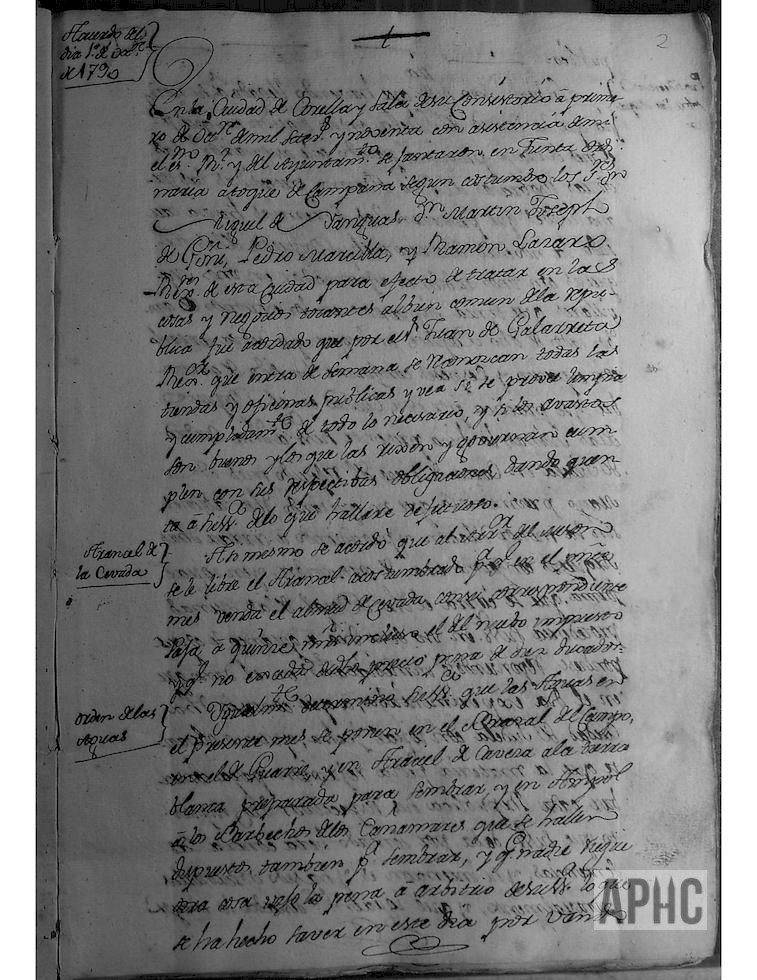 Acuerdo del
dia 1.º de Oct.re
de 1790
2
En la Ciudad de Corella y Sala de su Consistorio á prime-
ro de Oct.re de mil Setez.s y noventa con asistencia de mi
el es.no R.l y del Ayuntam.to se juntaron en Junta ordi-
naria á toque de Campana segun costumbre los S.res D.n
Miguel de Sanguas, D.n Martin Joseph
de Goñi, Pedro Marcilla, y Ramon Lazaro
Rex.res de esta Ciudad para efecto de tratar en las
cosas y negocios tocantes al bien comun de la repu-
blica fue acordado que por el s.r Juan de Galarreta
Rex.or que entra de Semana se reconozcan todas las
tiendas y oficinas publicas y vea si se provee limpia
y cumplidam.te de todo lo necesario, y si los avastos
son buenos y los que las rixen y goviernan cum-
plen con sus respectibas obligaciones dando quen-
ta á su S.a de lo que hallare defectuoso.
Aranzel de
la Cevada
Asi mesmo se acordó que al del meson
se le libre el Aranzel acostumbrado p.a q.e en el pres.te
mes venda el almud de Cevada con su correspondiente
Paja á quinze mrs incluso el del nuebo impuesto
y q.e no exceda de dho precio pena de diez ducados.
orden de las
Aguas
Igualm.te determinó su S.a que las Aguas en
el presente mes se ponen en el Brazal del Campo,
en el de y en Araciel de Caveza a la tierra
blanca preparada para sembrar, y en
á los Barbechos de los Cañamares que se hallen
dispuestos tambien p.a sembrar, y q.e nadie riegue
otra cosa vajo la pena á arbitrio de su S.a lo que
se ha hecho saver en este dia por vando
APHC